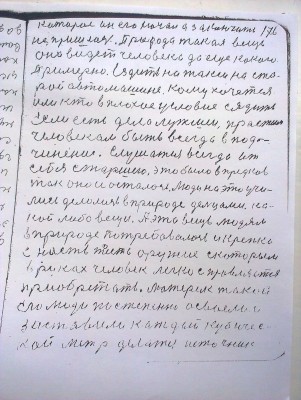 которое он его начал а закончить 176
не пришлось. Природа такая вещь
она ведет человека до еще какого
примерно. Ездить на такси на ста-
рой автомашине, кому хочется
им кто в плохое условие сядит
Если есть дела лучший, простым
человекам быть всегда в подо-
чинение. Слушатся всегда от
себя старшего, это было в предков
так оно и осталось. Люди на это учи-
лись делами в природе делцами, ка-
кой либо вещи. А эта вещь людям
в природе потребовалось и крепко
с ность оружие с которым
в руках человек легко справляется
приобретать. Материк такой
его люди постепенно освоели и
заставели каждый кубичес-
кой метр делать источник